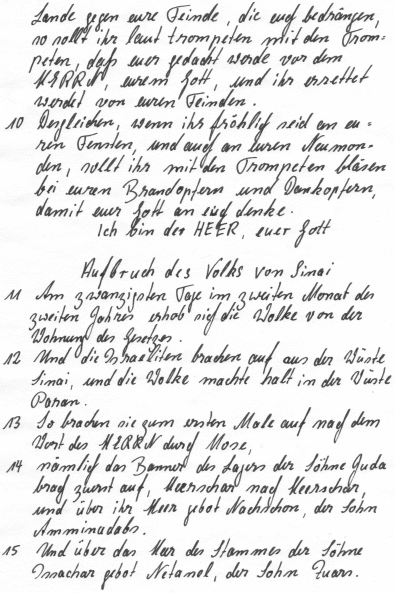 Lande gegen eure Feinde, die euch bedrängen,
so sollt ihr laut trompeten mit den Trom-
peten, daß euer gedacht werde vor dem
HERRN, eurem Gott, und ihr errettet
werdet von euren Feinden.
10 Desgleichen, wenn ihr fröhlich seid an eu-
ren Festen, und auch an euren Neumon-
den, sollt ihr mit den Trompeten blasen
bei euren Brandopfern und Dankopfern,
damit euer Gott an euch denke.
Ich bin der HEER, euer Gott
Aufbruch des Volks von Sinai
11 Am zwanzigsten Tage im zweiten Monat des
zweiten Jahres erhob sich die Wolke von der
Wohnung des Gesetzes.
12 Und die Israeliten brachen auf aus der Wüste
Sinai, und die Wolke machte halt in der Wüste
Paran.
13 So brachen sie zum ersten Male auf nach dem
Wort des HERRN durch Mose,
14 nämlich das Banner des Lagers der Söhne Juda
brach zuerst auf, Heerschar nach Heerschar,
und über ihr Heer gebot Nachschon, der Sohn
Amminadabs.
15 Und über das Heer des Stammes der Söhne
Issachar gebot Netanel, der Sohn Zuars.